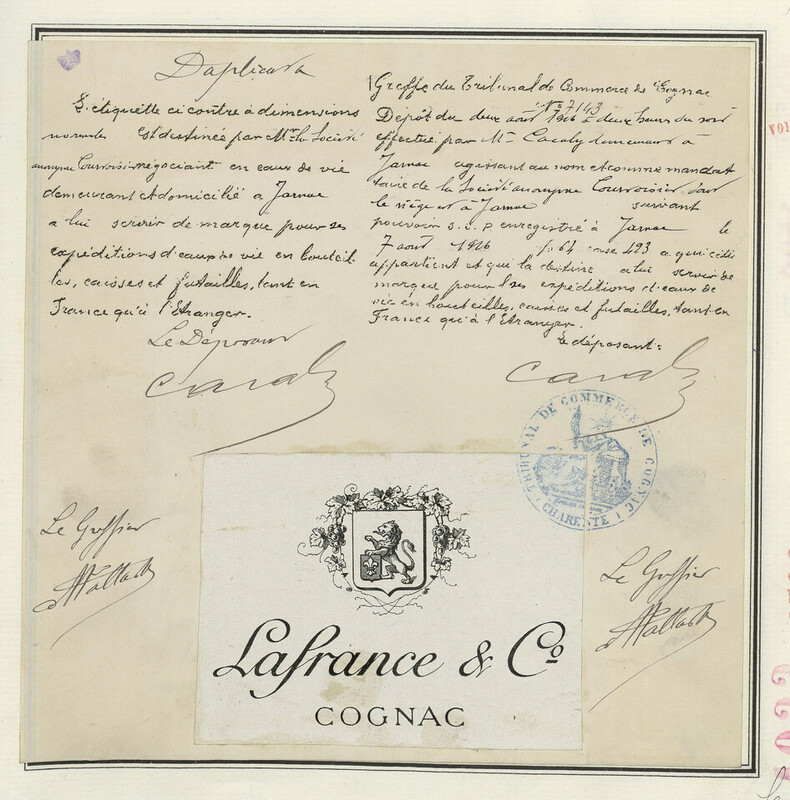 Duplicata
L'étiquette ci contre à dimensions
normales est destinée par Mr la Société
anonyme Courvoisier négociant en eaux de vie
demeurant et domicilié à Jarnac
a lui servir de marque pour ses
expéditions d'eaux de vie en bouteil-
les, caisses et futailles, tant en
France qu'à l'Etranger.
Le Déposant
Greffe du Tribunal de Commerce de Cognac
No 7143
Dépôt du deux août 1926 à deux heures du soir
effectué par Mr demeurant à
Jarnac agissant au nom et comme mandat
taire de la Société anonyme Courvoisier dont
le siège est à Jarnac suivant
pouvoir s.s.p enregistré à Jarnac le
7 août 1926 fo 64 case 493 a qui cette
appartient et qui la destine a lui servir de
marque pour ses expéditions d'eaux de
vie en bouteilles, caisses et futailles, tant en
France qu'à l'Etranger.
Le déposant:
TRIBUNAL DE COMMERCE DE COGNAC
CHARENTE
Le Greffier
Le Greffier
Lafrance & Co
COGNAC